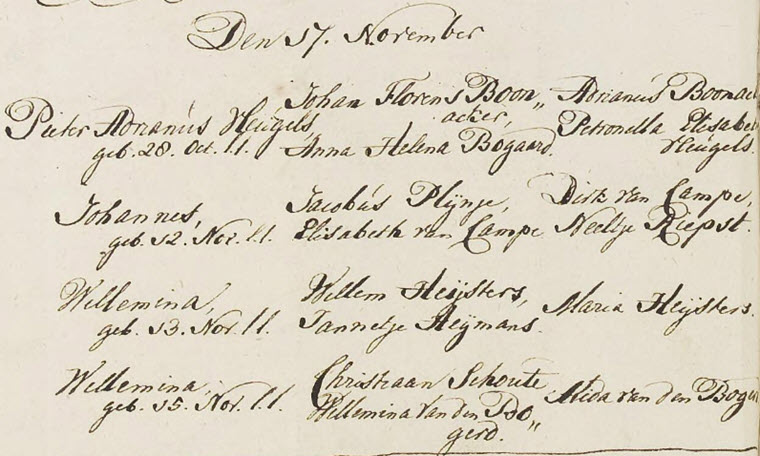 Den 17. November
Pieter Adrianús Heúgels,
geb. 28. Oct. l.l.
Johan Florens Boon„
acker,
Anna Helena Bogaard.
Adrianús Boonac
Petronella Elisabe
Heúgels.
Johannes,
geb. 12. Nov. l.l.
Jacobús Plÿnje,
Elisabeth van Campe
Dirk van Campe,
Neeltje Riepst.
Willemina,
geb. 13. Nov. l.l.
Willem Heÿsters,
Jannetje Heÿmans.
Maria Heÿsters.
Willemina,
geb. 15. Nov. l.l.
Christiaan Schoute
Willemina van den Bo„
gerd.
Alida van den Boge